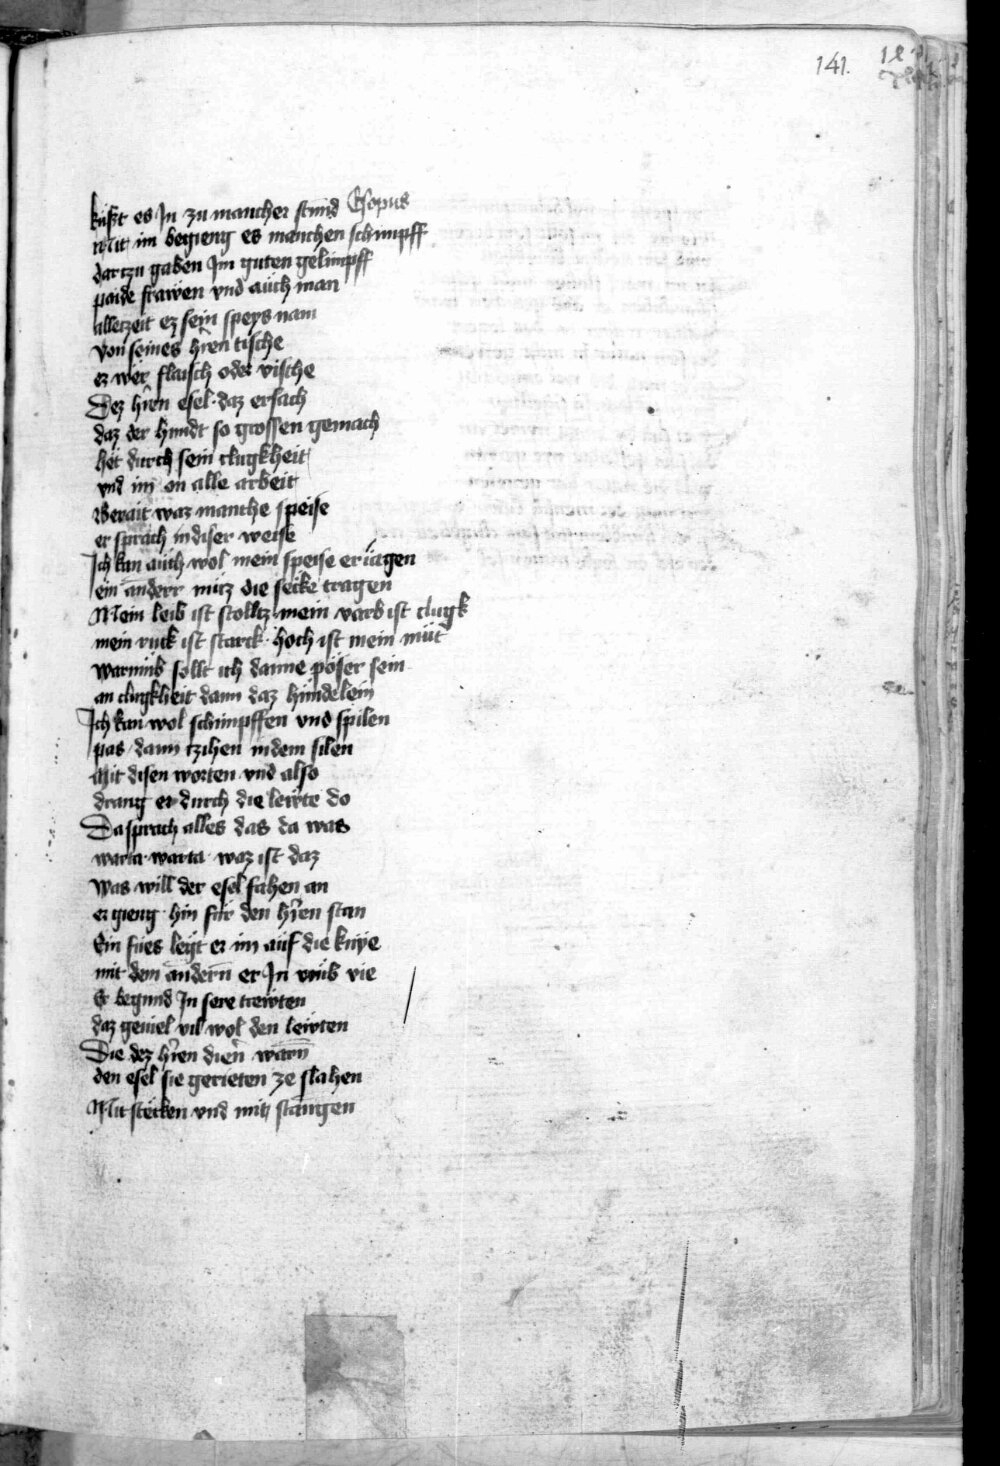 141.
küßt es Jn zu mancher stünd Esopus
Mit im begieng es manchen schimpff
dartzu gaben Jm guten gelimpff
paide frawen vnd aüch man
alletzeit ez sein speys nam
von seines hr̄en tische
ez wer flaisch oder vische
Dez hr̄en esel daz ersach
daz der hundt so grossen gemach
het durch sein clugkheit
vnd im on alle arbeit
Berait waz manche speise
er sprach indiser weise
Jch kan aüch wol mein speise eriagen
ein anderr müz die secke tragen
Mein leib ist stolltz mein varb ist clugk
mein ruck ist starck hoch ist mein müt
warumb sollt ich danne pöser sein
an clugkheit dann daz hündelein
Jch kan wol schimpffen vnd spilen
pas dann tzihen indem silen
Mit disen worten vnd also
drang er durch die lewte do
Da sprach alles das da was
warta warta waz ist daz
was will der esel fahen an
er gieng hin für den hr̄en stan
Ein fües legt er im aüf die knÿe
mit dem andern̄ er Jn vmb vie
Er begund Jn sere trewten
daz geuiel vil wol den lewten
Die dez hr̄en dien̄ warn̄
den esel sie gerieten ze slahen
Mit stecken vnd mit stangen